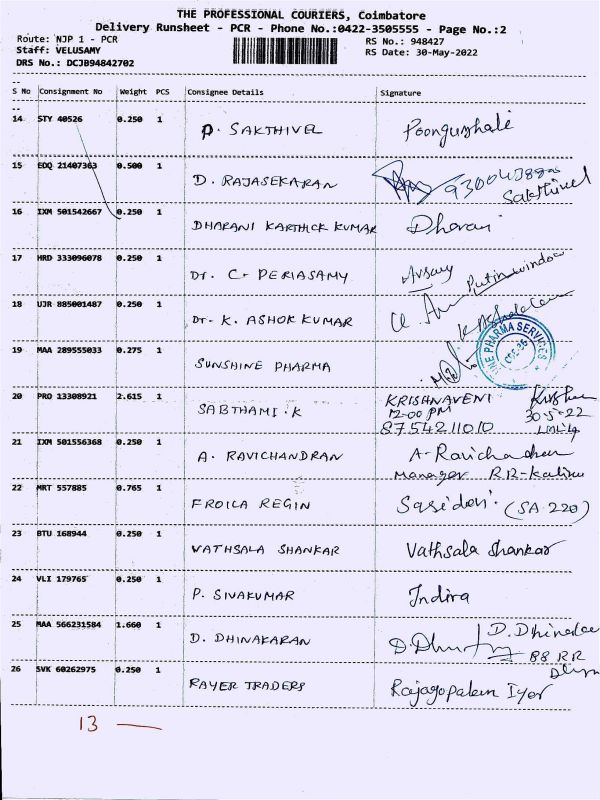 THE PROFESSIONAL COURIERS, Coimbatore
Delivery Runsheet - PCR - Phone No.:0422-3505555 - Page No.:2
Route: NJP 1 - PCR
RS No.: 948427
Staff: VELUSAMY
RS Date: 30-May-2022
DRS No.: DCJB94842702
S No Consignment No Weight PCS Consignee Details Signature
14 STY 40526 0.250 1 P. SAKTHIVEL
15 EDQ 21407363 0.500 1 D. RAJASEKARAN
Sakthivel
16 IXM 501542667 0.250 1 DHARANI KARTHICK KUMAR Dharani
17 HRD 333096078 0.250 1 Dr. C. PERIASAMY
Putin window
18 UJR 885001487 0.250 1 Dr. K. ASHOK KUMAR
19 MAA 289555033 0.275 1 SUNSHINE PHARMA
PHARMA SERVICES
20 PRO 13308921 2.615 1 SABTHAMI.K KRISHNAVENI
12-00 PM 30-5-22
8754211010
21 IXM 501556368 0.250 1 A. RAVICHANDRAN A-Ravichandran
Manager
22 MRT 557885 0.765 1 FROILA REGIN Sasidevi. (SA 220)
23 BTU 168944 0.250 1 VATHSALA SHANKAR Vathsala Shankar
24 VLI 179765 0.250 1 P. SIVAKUMAR Indira
25 MAA 566231584 1.660 1 D. DHINAKARAN
88 RR
26 SVK 60262975 0.250 1 RAYER TRADERS Rajagopalan Iyer
13